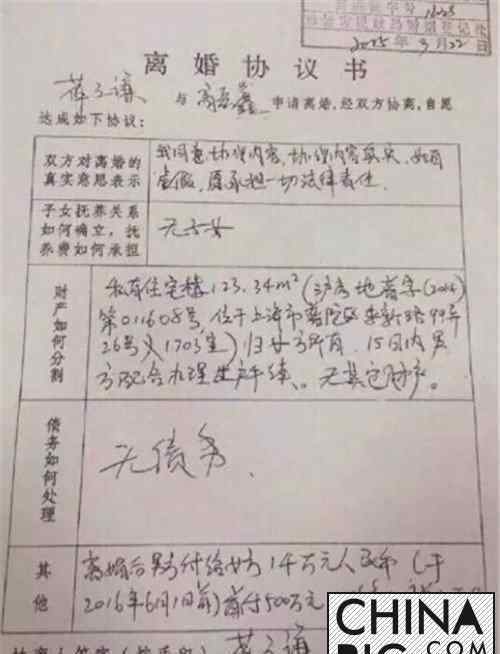 2015年9月22日
离婚协议书
蒋子谦 与 申请离婚，经双方协商，自愿
达成如下协议：
双方对离婚的
真实意思表示
我同意协议内容，协议内容真实，如有
虚假，愿承担一切法律责任
子女抚养关系
如何确立，抚
养费如何承担
无子女
财产如何分割
私有住宅楼123.34m²
第011608号，位于上海市普陀区 99弄
26号 1703室）归女方所有，15日内男
方配合办理过户手续。无其它财产。
债务如何处理
无债务.
其他
离婚后男方付给女方1千万元人民币（于
2016年6月1日前）首付500万元
蒋子谦
CHINA